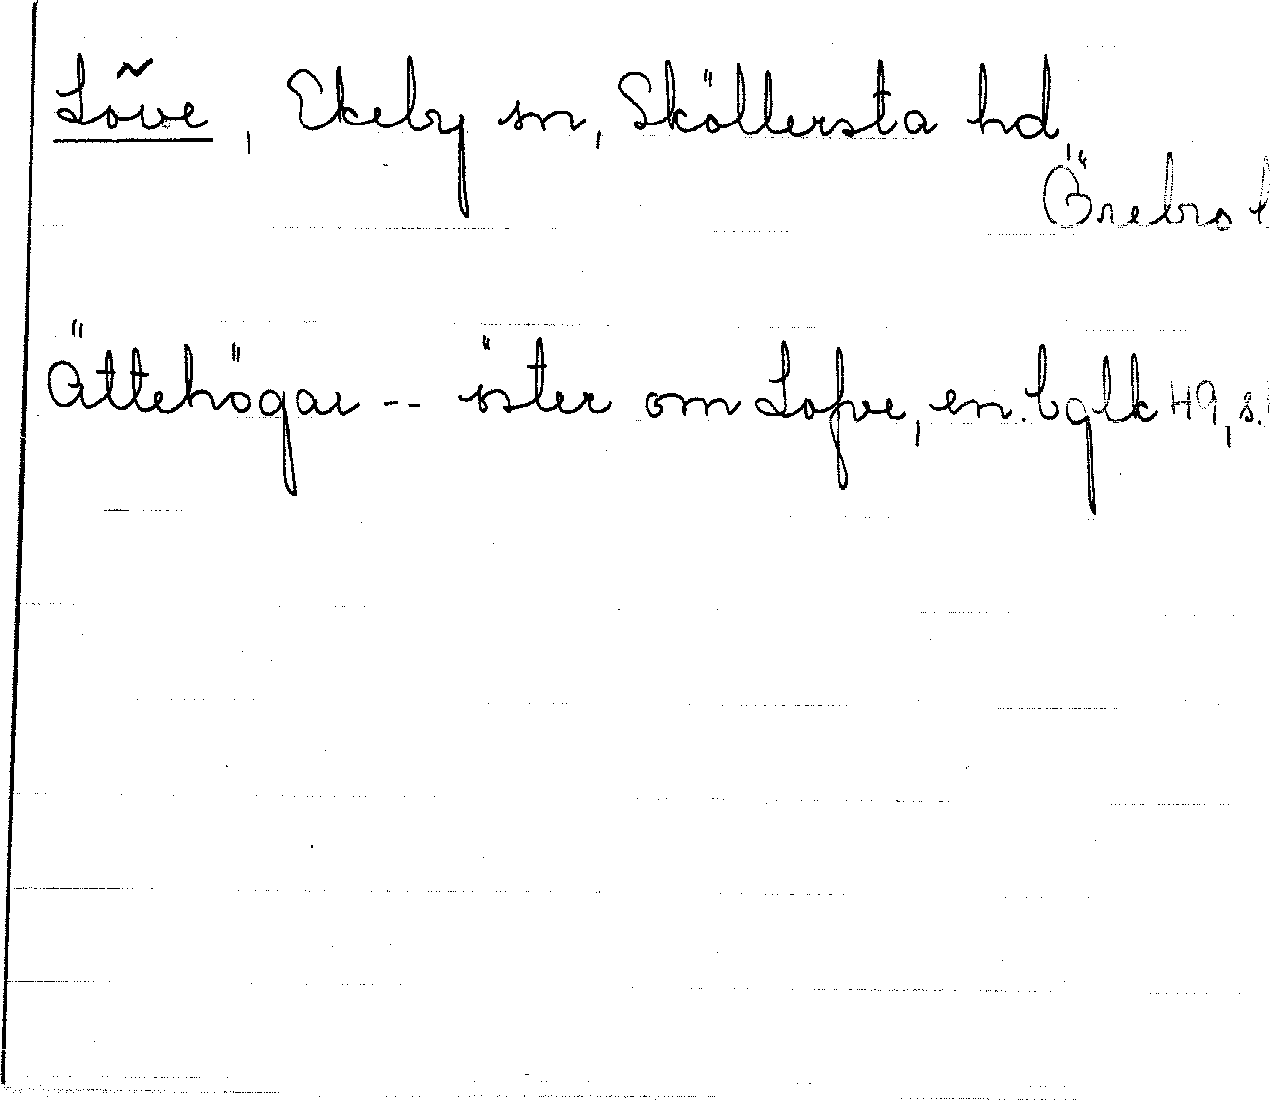 Löve, Ekeby sn, Sköllersta hd
Örebro l
Ättehögar -- öster om Lofve, en. bglk 49, s.